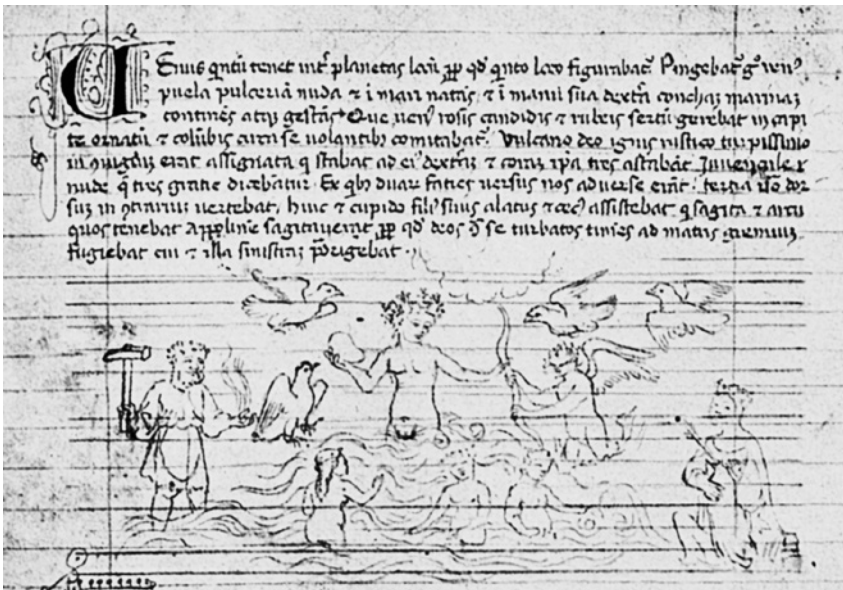 VEnus quintũ tenet int̃ planetas locũ ꝓp qđ quinto loco figurabat᷑. Pingebat᷑ g̊ ven⁹
puela pulcerimã nuda ⁊ ĩ mari natãs ⁊ ĩ manu sua dextra concham marinam
continẽs atq̃ gestãs Que ven⁹ rosis candidis ⁊ rubeis sertũ gerebat in capi
te ornatũ ⁊ colũbis circa se volantibꝫ comitabat᷑. Vulcano deo ignis rustico turpissimo
in ꝯiugiũ erat assignata q̃ stabat ad ei⁹ dextrã ⁊ corã ip̃a tres astabãt Juvencule
nude q̃ tres gratie dicebant᷑ Ex qbꝫ duar̃ facies versus nos adverse erãt tertia v̊o dor
sum in ꝯtrarium vertebat, huic ⁊ cupido fili⁹ suus alatus ⁊ cec⁹ assistebat q̃ sagita ⁊ arcu
quos tenebat Appolinẽ sagitaverat ꝓp qđ deos ꝯ̃ se turbatos timẽs ad matris gremium
fugiebat cui ⁊ illa sinistrã porigebat